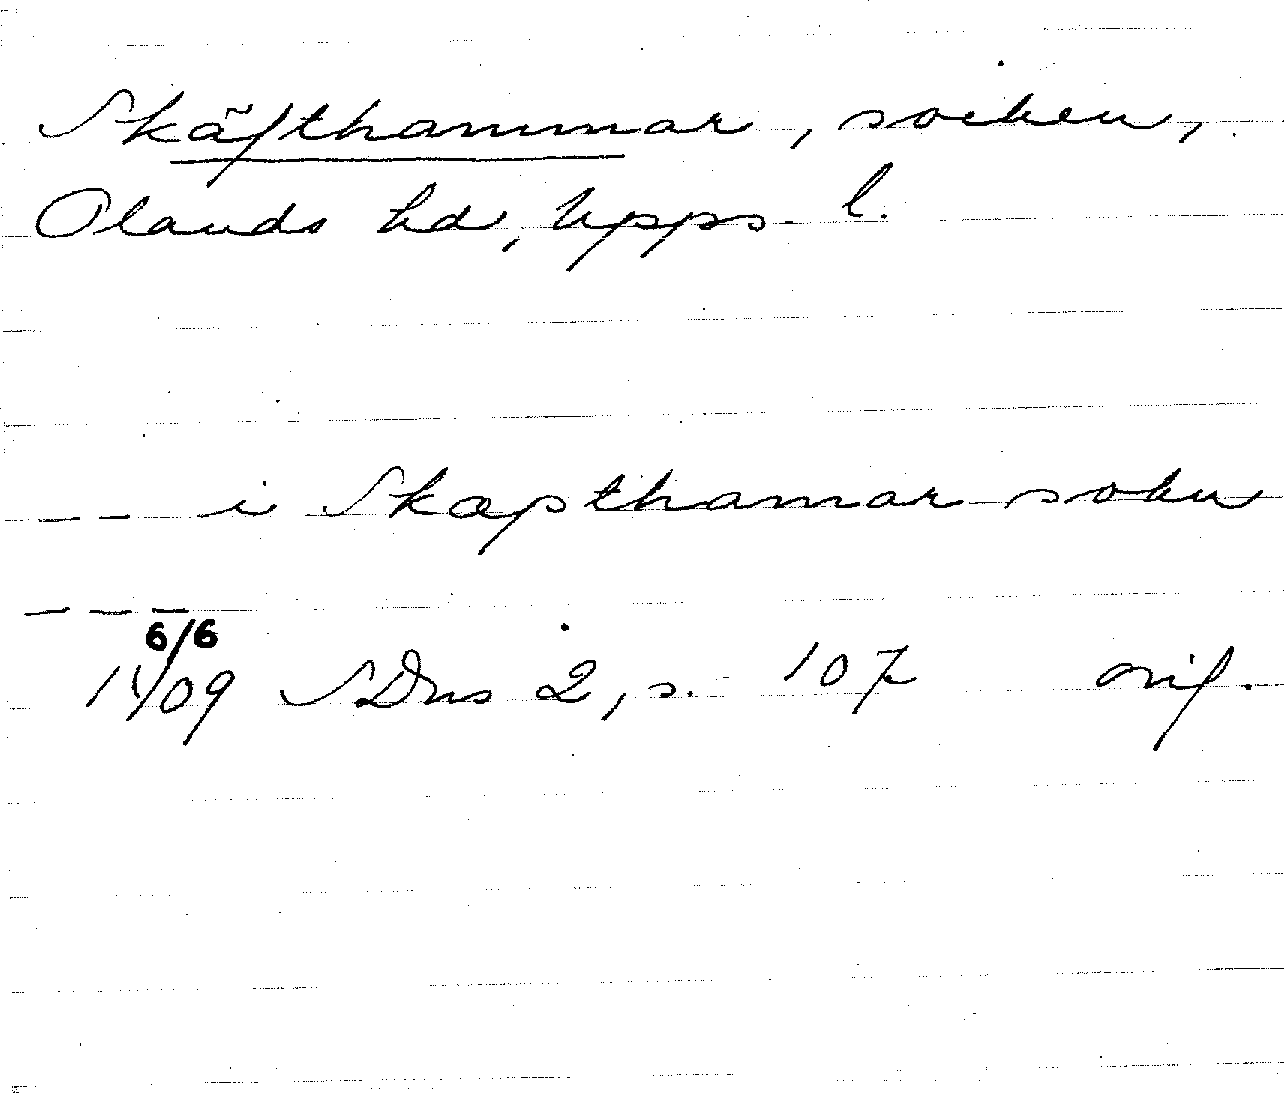 Skäfthammar, socken,
Olands hd, Upps. l.
— — i Skapthamar sokn
— — —
6/6
1409 SDns 2, s. 107 orig.